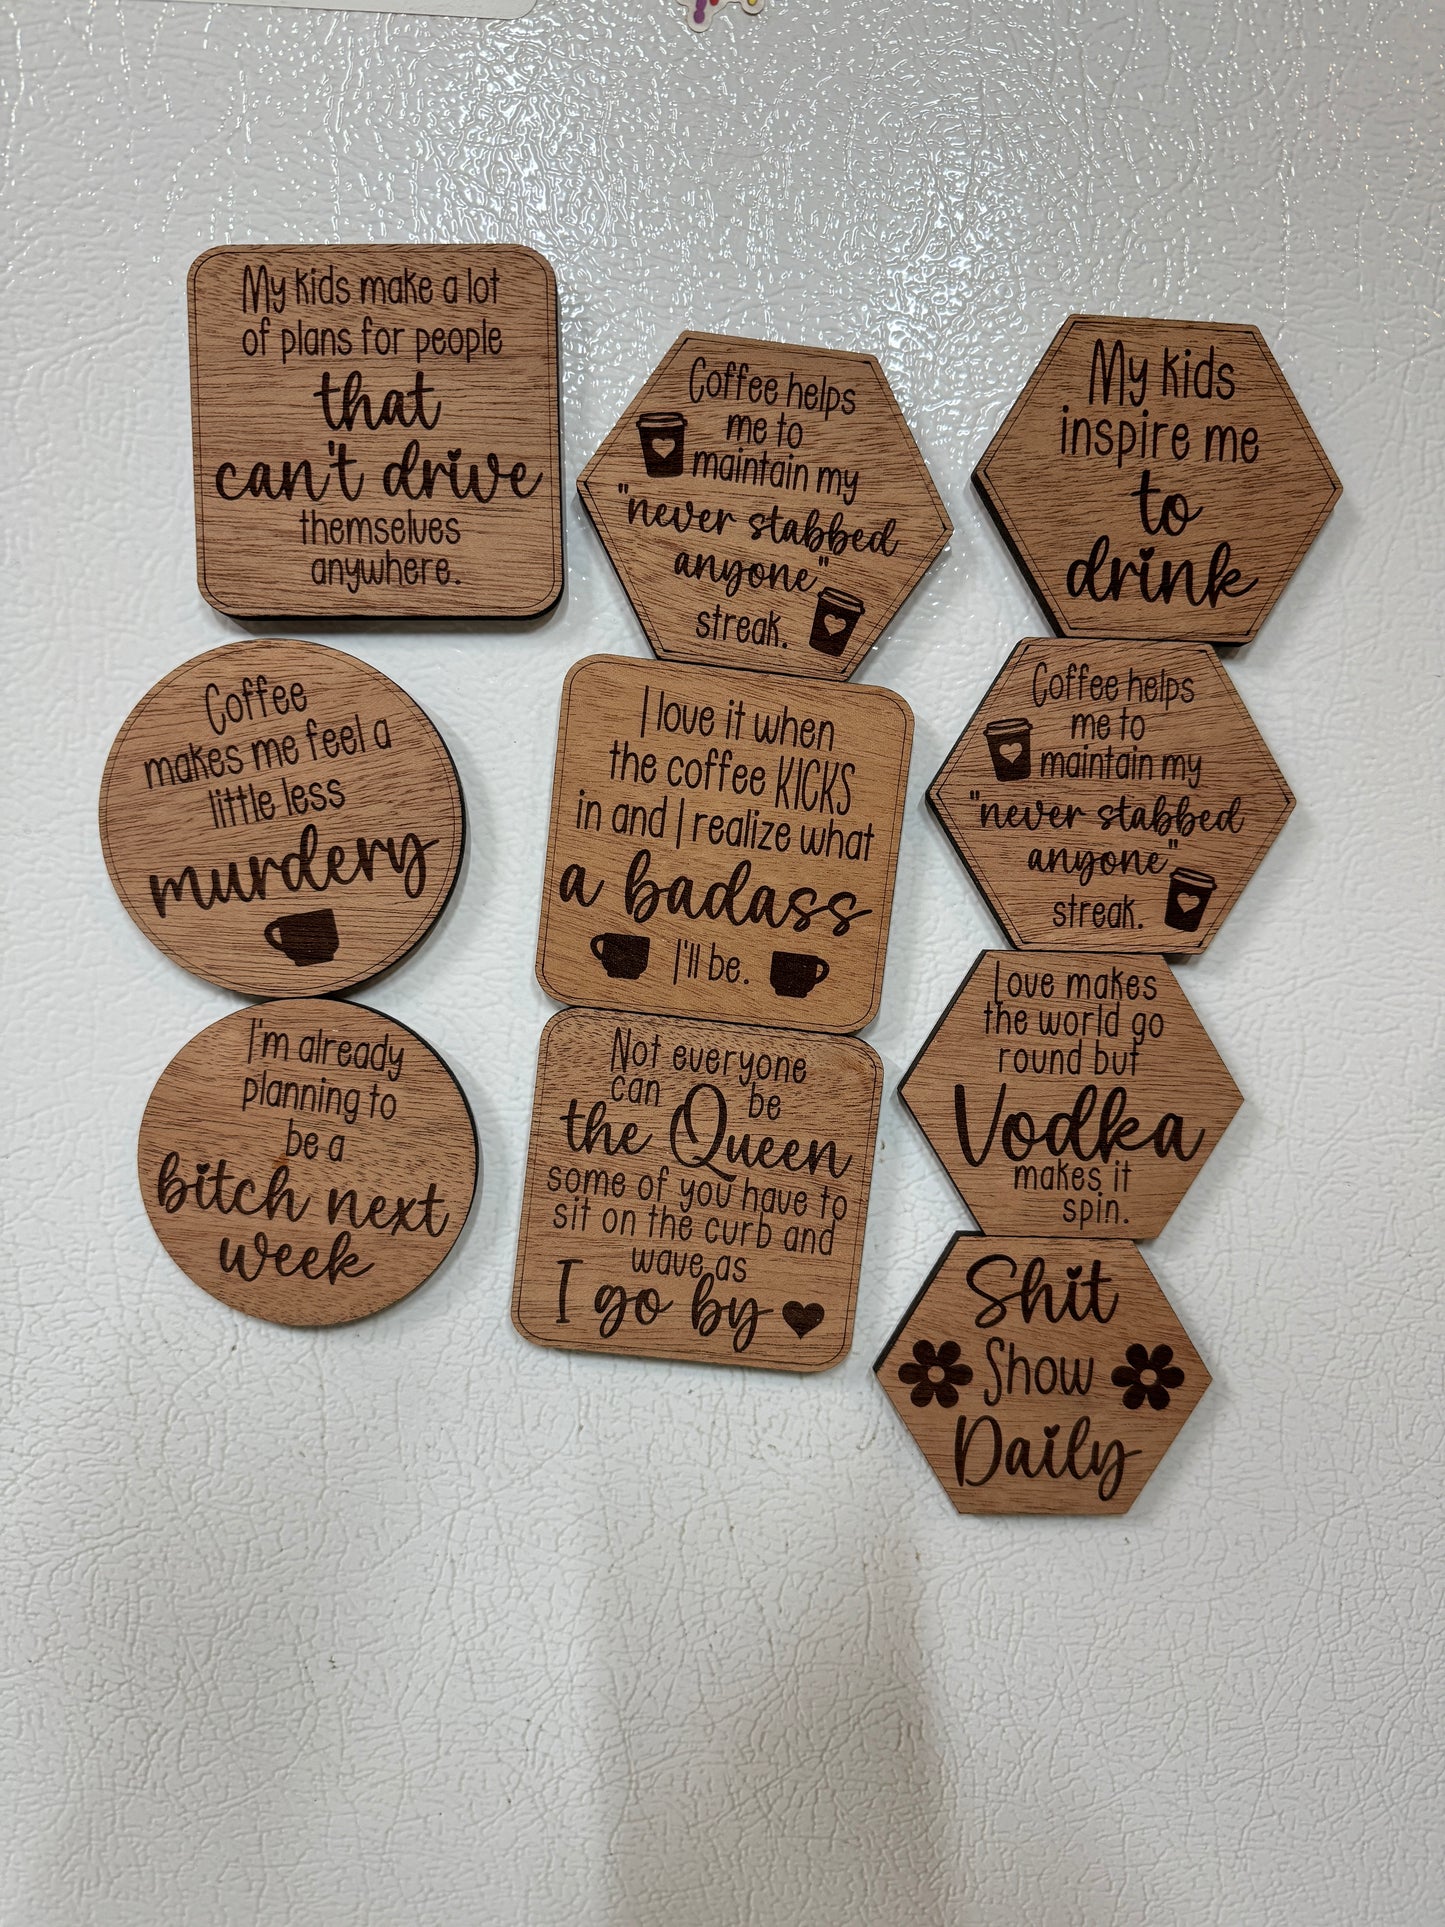 My kids make a lot
of plans for people
that
can't drive
themselves
anywhere.
Coffee helps
me to
maintain my
"never stabbed
anyone"
streak.
My kids
inspire me
to
drink
Coffee
makes me feel a
little less
murdery
I love it when
the coffee KICKS
in and I realize what
a badass
I'll be.
Coffee helps
me to
maintain my
"never stabbed
anyone"
streak.
I'm already
planning to
be a
bitch next
week
Not everyone
can be
the Queen
some of you have to
sit on the curb and
wave as
I go by
Love makes
the world go
round but
Vodka
makes it
spin.
Shit
Show
Daily